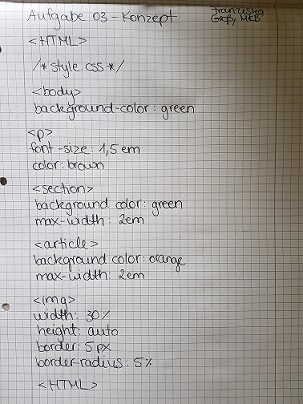 Aufgabe 03 - Konzept
Franziska
Groß, MKB
<HTML>
/* style css */
<body>
background-color: green
<p>
font-size: 1,5 em
color: brown
<section>
background color: green
max-width: 2em
<article>
background color: orange
max-width: 2em
<img>
width: 30%
height: auto
border: 5px
border-radius: 5%
<HTML>